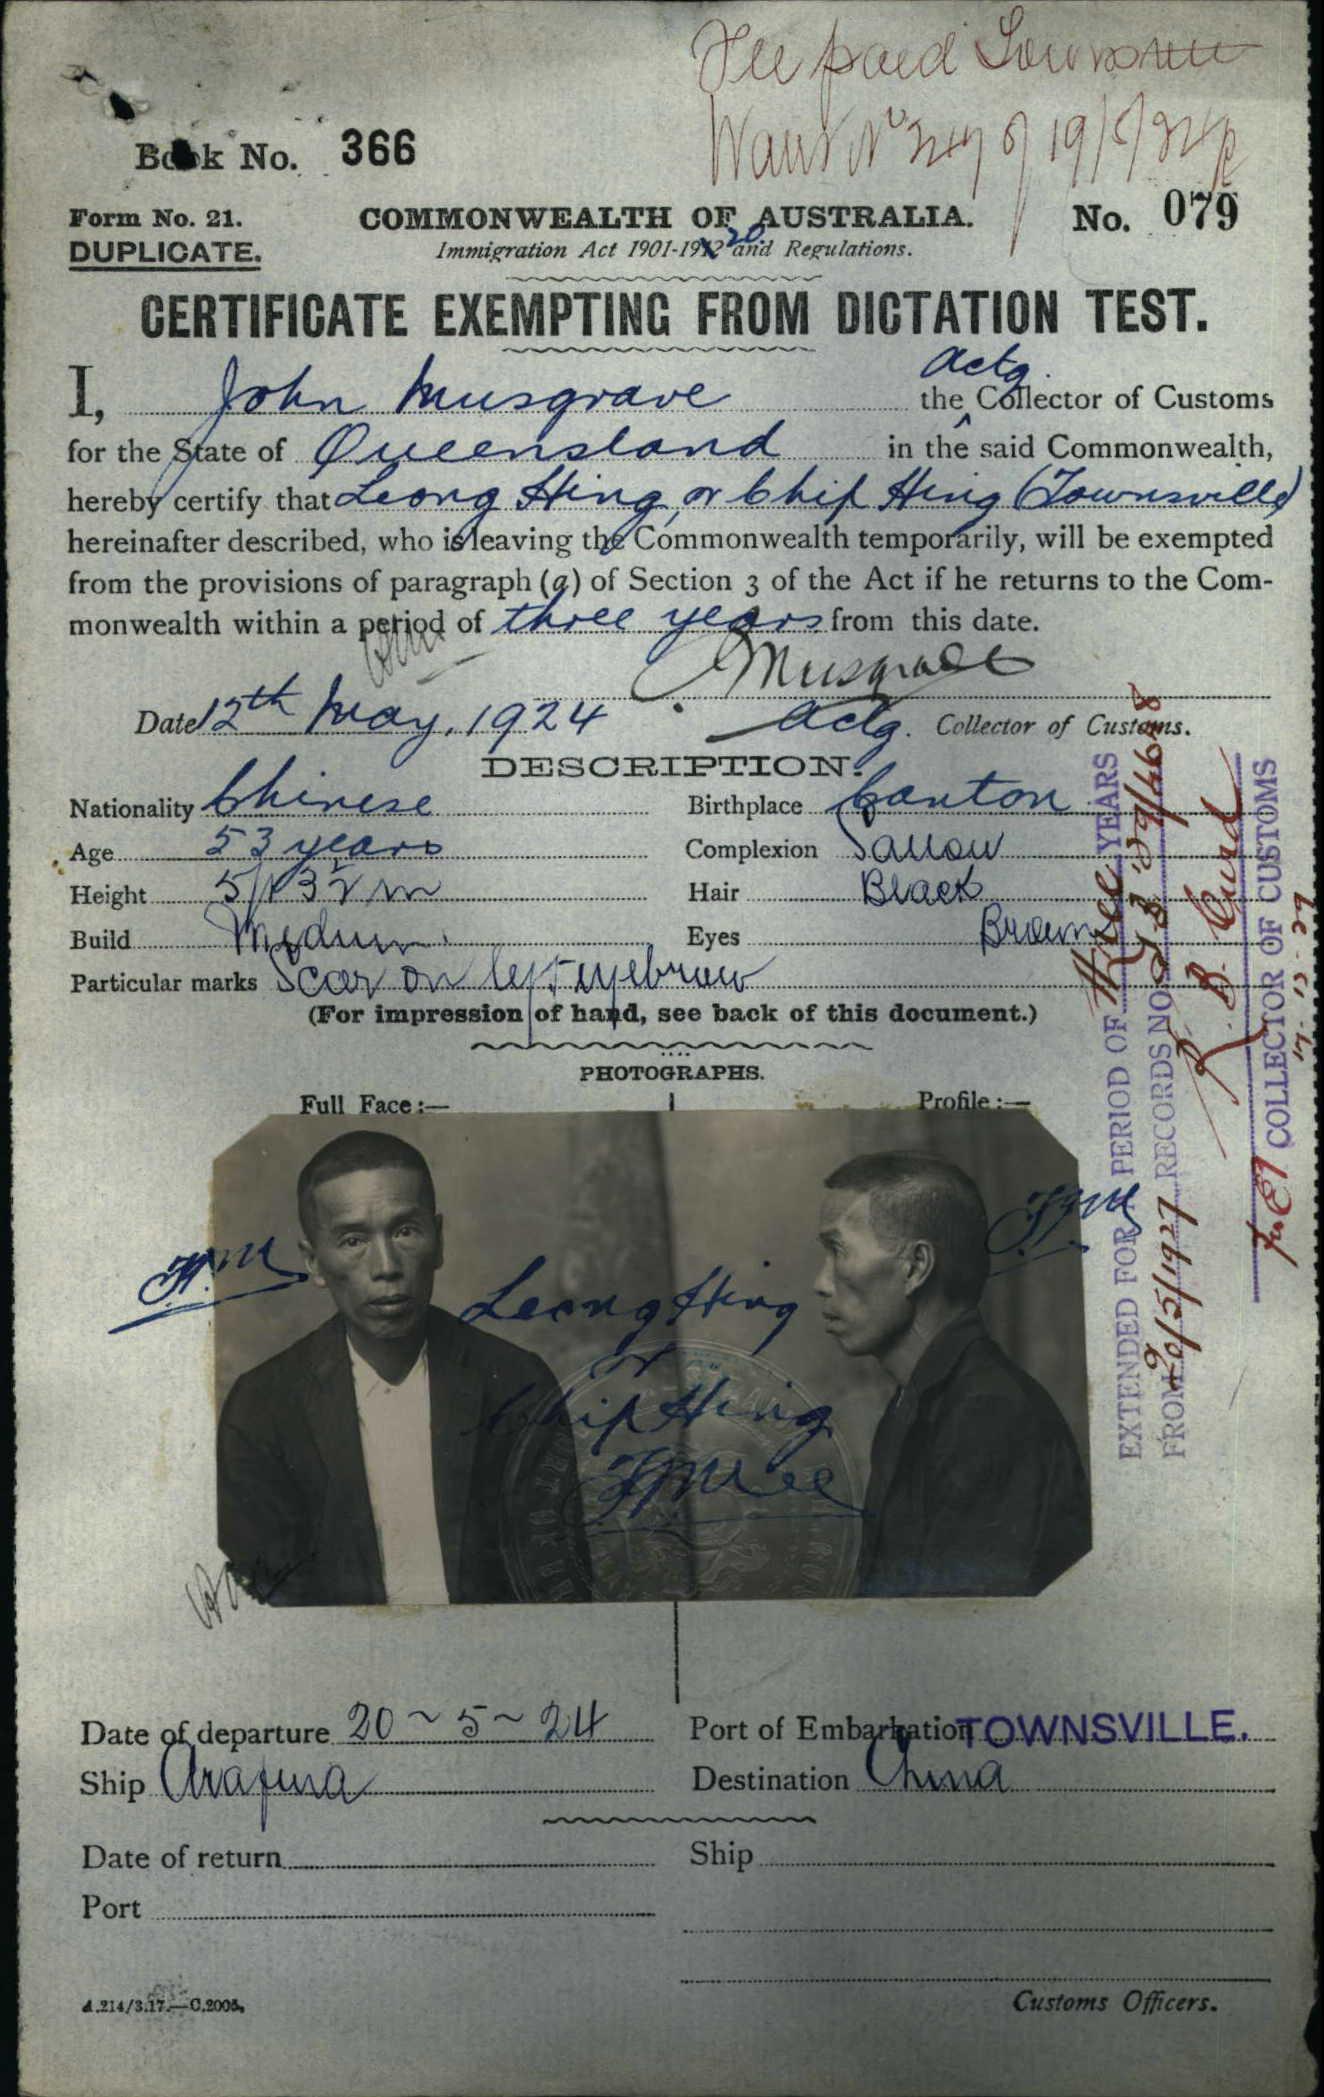 Fee paid Townsville
Book No. 366
Form No. 21.
COMMONWEALTH OF AUSTRALIA.
No. 079
DUPLICATE.
Immigration Act 1901-1912 20 and Regulations.
CERTIFICATE EXEMPTING FROM DICTATION TEST.
actg.
I, John Musgrave the Collector of Customs
for the State of Queensland in the said Commonwealth,
hereby certify that Leong Hing or Chip Hing (Townsville)
hereinafter described, who is leaving the Commonwealth temporarily, will be exempted
from the provisions of paragraph (a) of Section 3 of the Act if he returns to the Com-
monwealth within a period of three years from this date.
Musgrave
Date 12th May, 1924 actg. Collector of Customs.
DESCRIPTION.
Nationality Chinese Birthplace Canton
Age 53 years Complexion Sallow
Height Hair Black
Build Medium Eyes Brown
Particular marks Scar on left eyebrow
(For impression of hand, see back of this document.)
PHOTOGRAPHS.
Full Face:— Profile:—
Leong Hing
or
Chip Hing
EXTENDED FOR A PERIOD OF three YEARS
FROM 20/5/1927 RECORDS NO
COLLECTOR OF CUSTOMS
Date of departure 20-5-24 Port of Embarkation TOWNSVILLE.
Ship Arafura Destination China
Date of return Ship
Port
A.214/3.17.—C.2005.
Customs Officers.